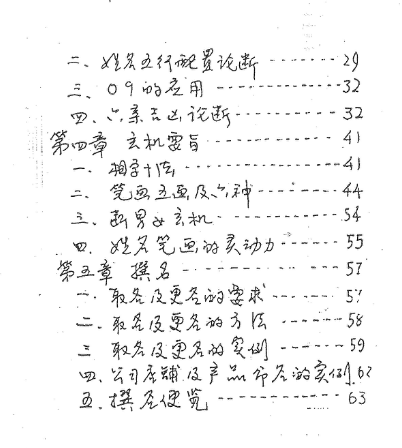 二、姓名五行配置论断------29
三、09的应用------------32
四、六亲吉凶论断--------32
第四章 玄机要旨----------41
一、相字十法------------41
二、笔画五画及六神------44
三、断男女玄机----------54
四、姓名笔画的灵动力------55
第五章 撰名--------------57
一、取名及更名的要求----57
二、取名及更名的方法----58
三、取名及更名的实例----59
四、公司店铺及产品命名的实例.62
五、撰名便览------------63